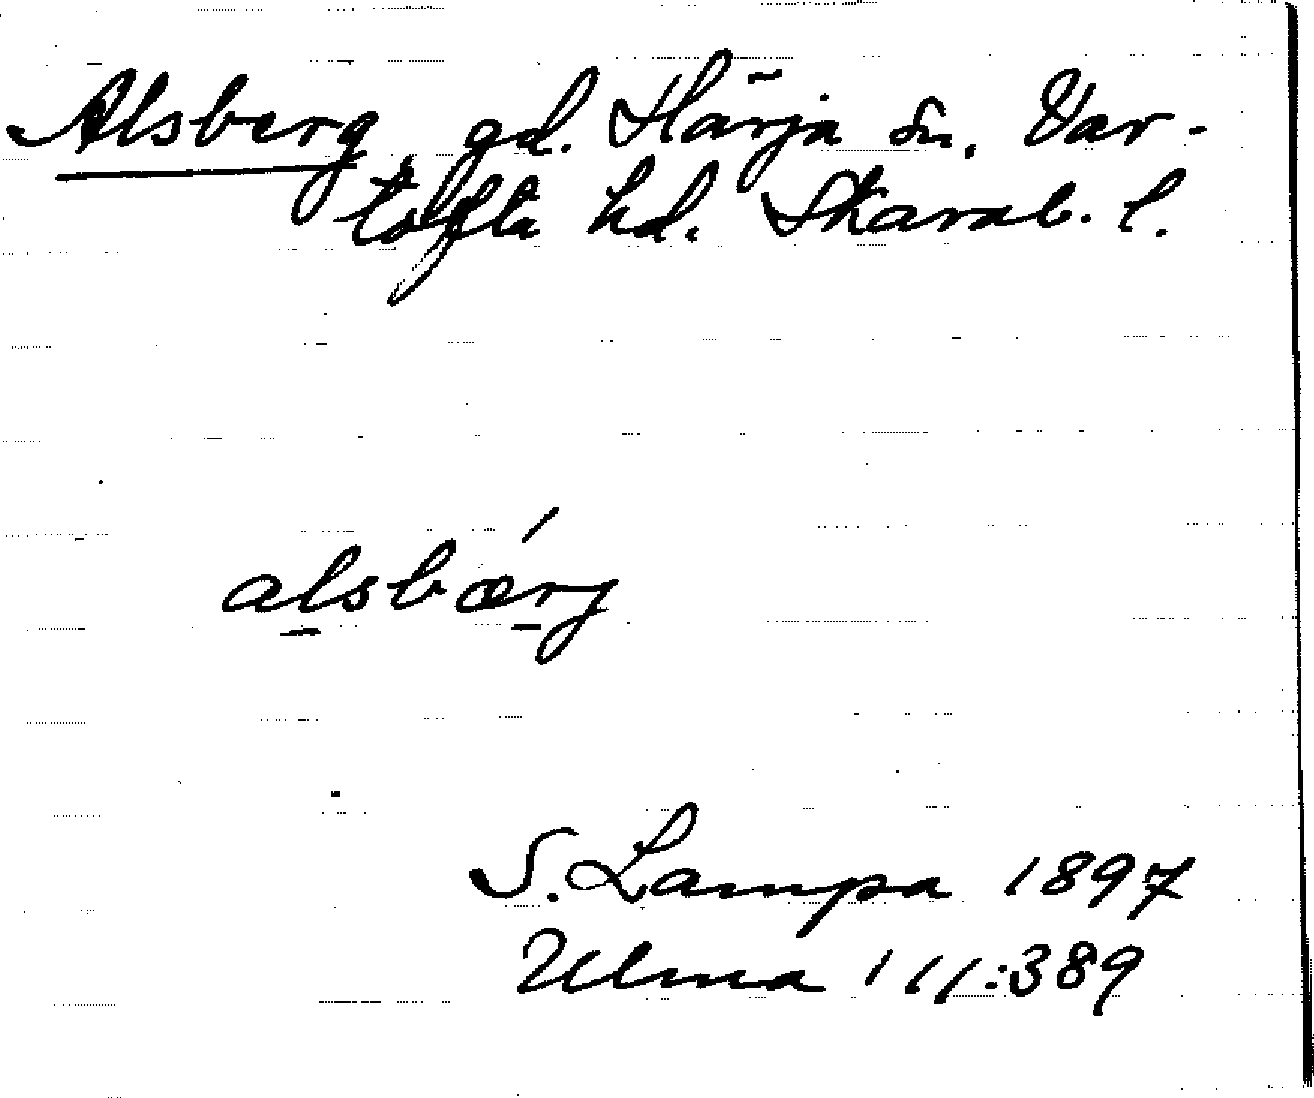 Alsberg gd. Härja sn. Var-
tofta hd. Skarab. l.
alsbǽrg
S. Lampa 1897
Ulma 111:389